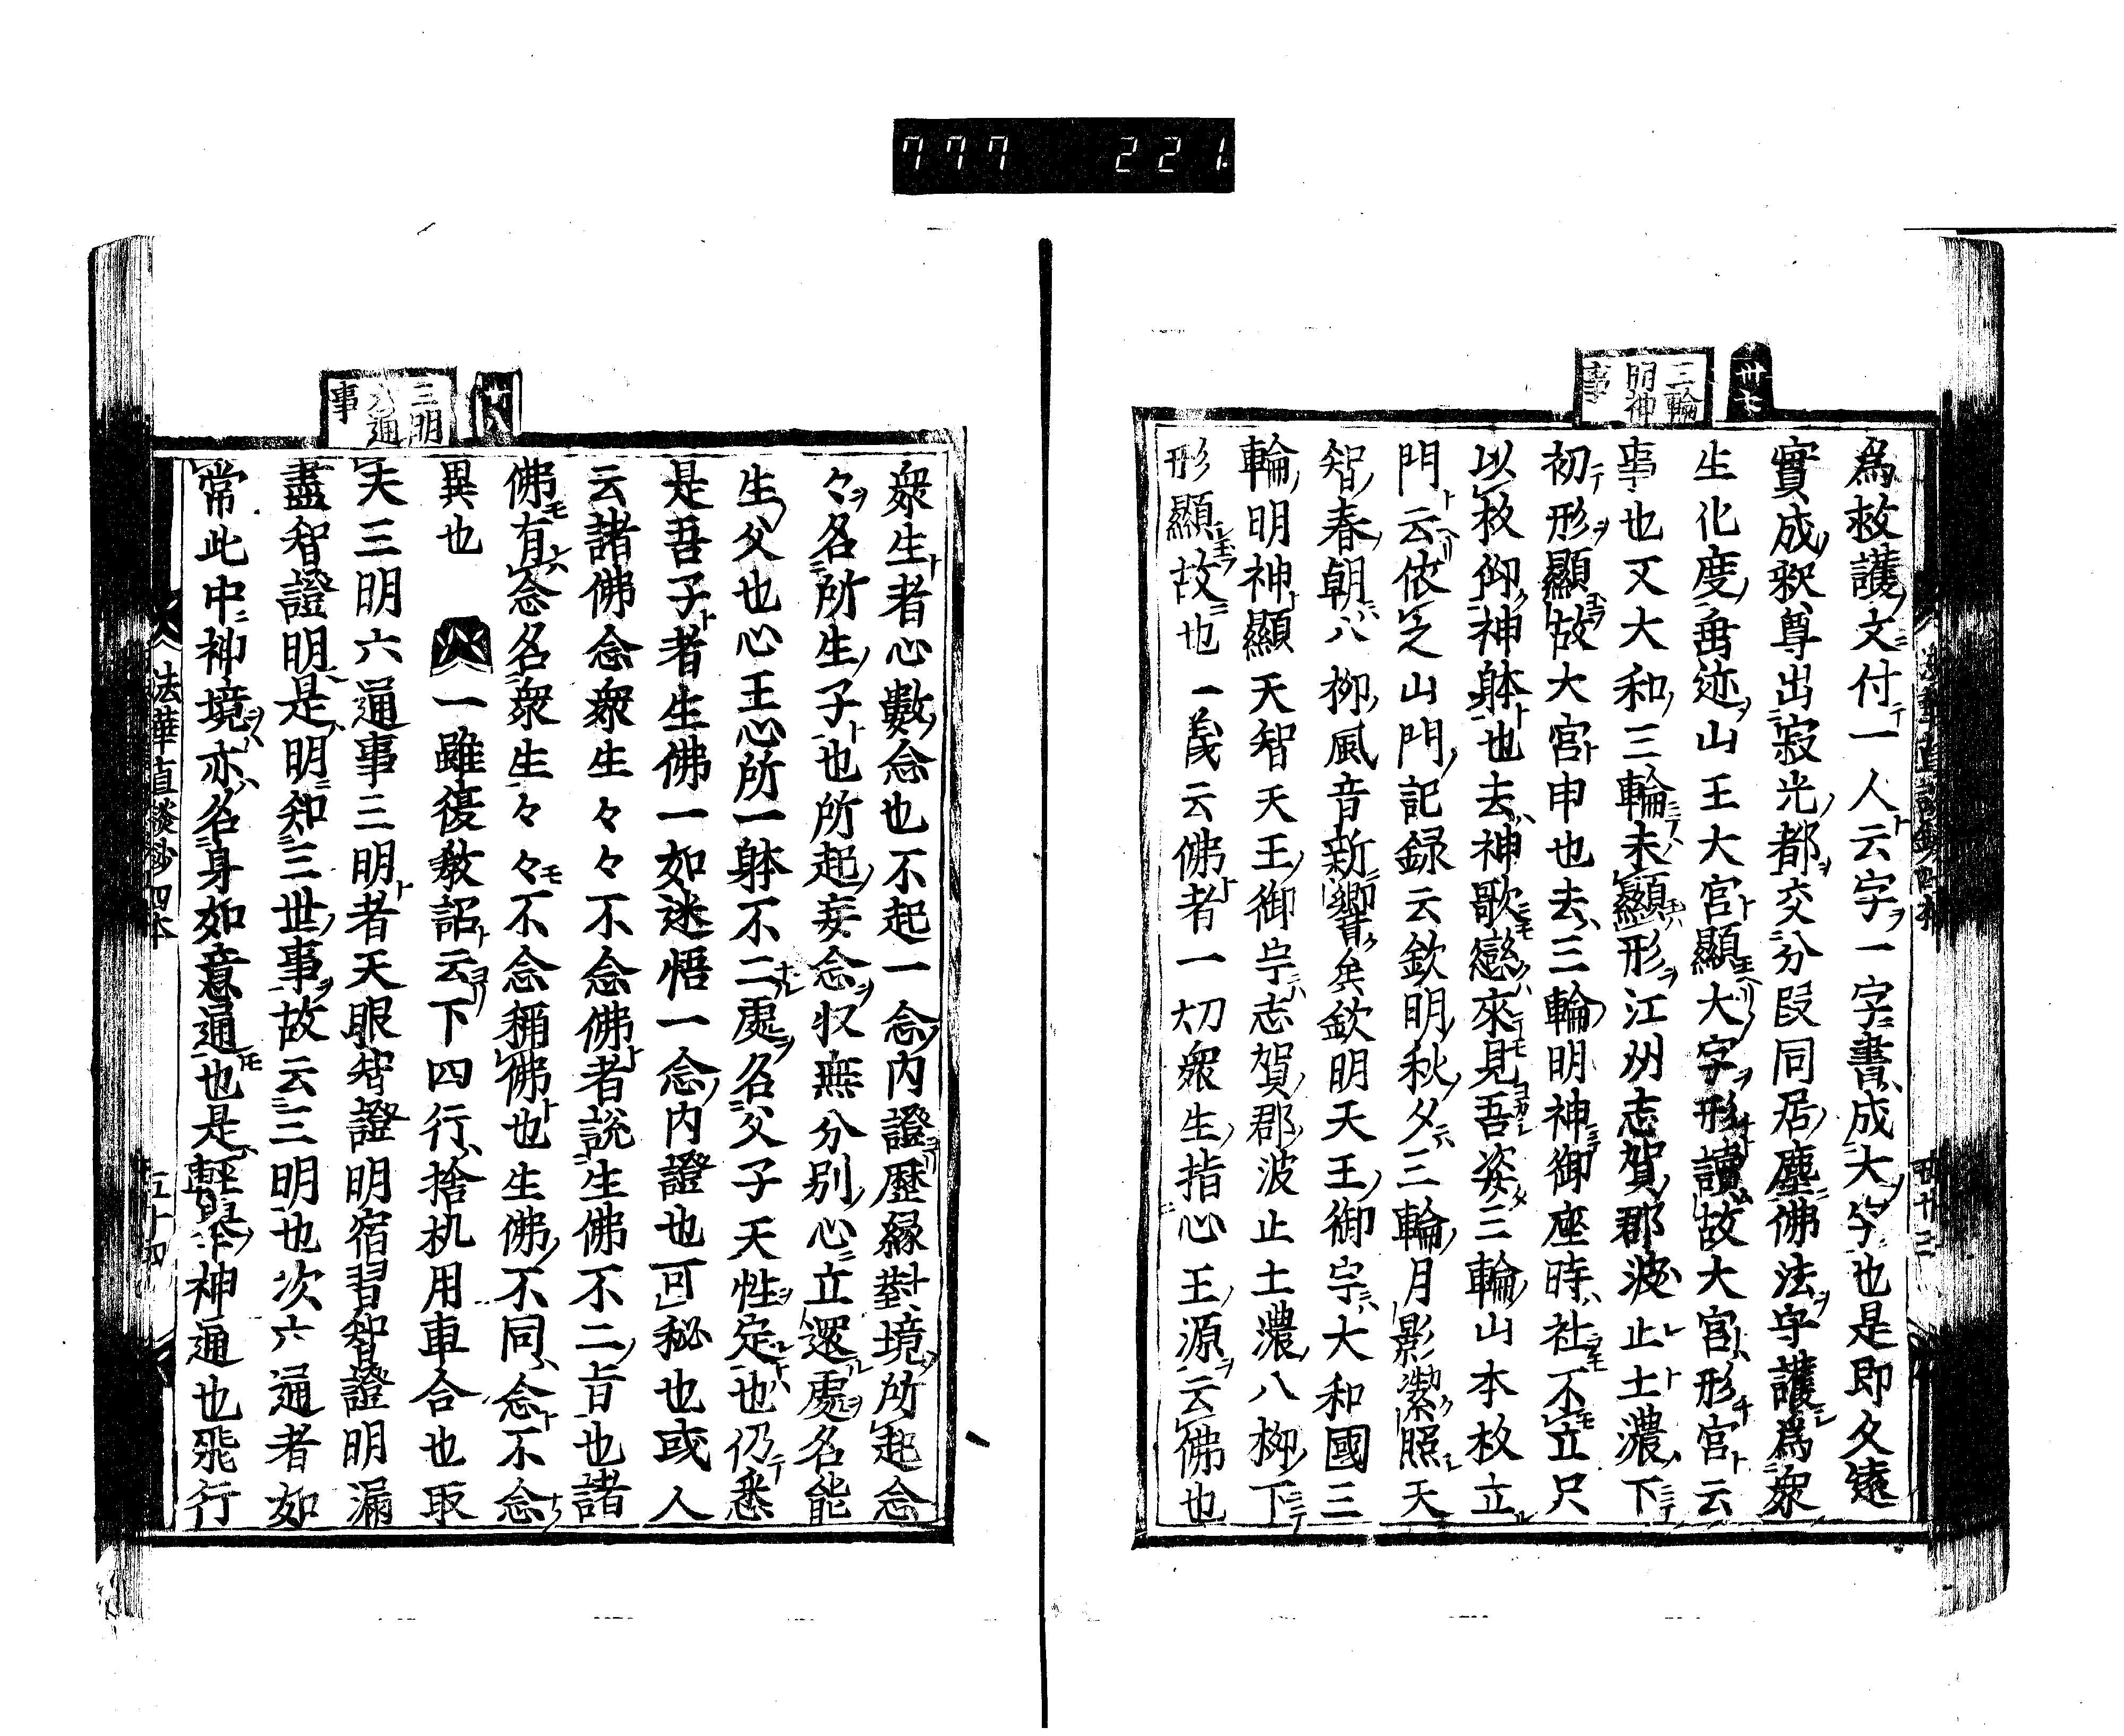 777 221
三輪
明神
事
卅七
為救護文付一人云字一字書成大字也是即久遠
實成釈尊出寂光都交分段同居塵佛法守護為衆
生化度垂迹山王大宮顯大字形讀故大宮形宮云
事也又大和三輪未顯形江州志賀郡波止土濃下
初形顯故大宮申也去三輪明神御座時社不立只
以杉仰神躰也去神歌戀來見吾姿三輪山本杉立
門云依之山門記録云欽明秋夕三輪月影潔照天
智春朝八栁風音新響矣欽明天王御宇大和國三
輪明神顯天智天王御宇志賀郡波止土濃八栁下
形顯故也一義云佛者一切衆生指心王源云佛也
三明
六通
事
衆生者心數念也不起一念内證歴縁對境所起念
々名所生子也所起妄念収無分别心立還處名能
生父也心王心所一躰不二處名父子天性定也仍悉
是吾子者生佛一如迷悟一念内證也可秘也或人
云諸佛念衆生々々不念佛者説生佛不二旨也諸
佛有念名衆生々々不念稱佛也生佛不同念不念
異也 一雖復教詔云下四行捨机用車合也取
夫三明六通事三明者天眼智證明宿習智證明漏
盡智證明是明知三世事故云三明也次六通者如
常此中神境亦名身如意通也是輕舉神通也飛行
法華直談鈔四本 五十四